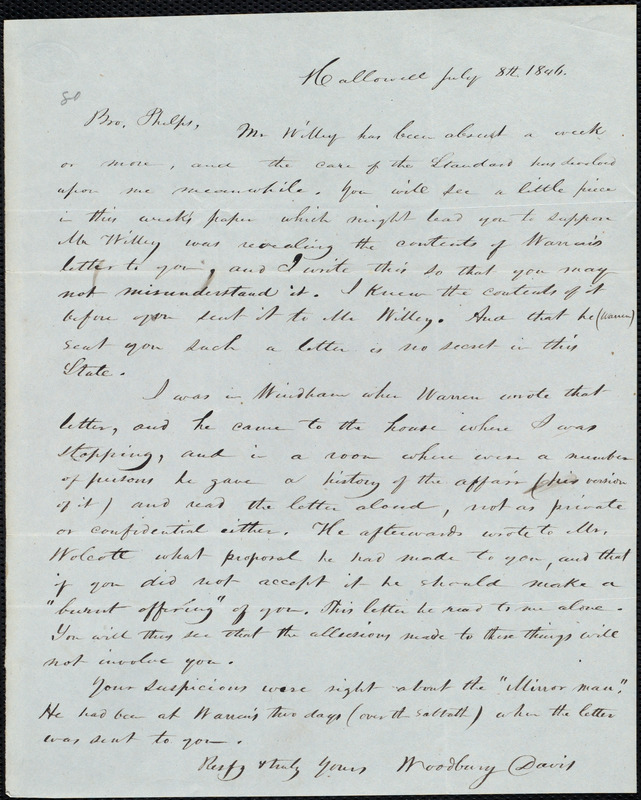 Hallowell July 8th 1846.
80
Bro. Phelps,
Mr Willey has been absent a week
or more, and the care of the Standard has devolved
upon me meanwhile. You will see a little piece
in this week's paper which might lead you to suppose
Mr Willey was revealing the contents of Warren's
letter to you, and I write this so that you may
not misunderstand it. I knew the contents of it
before you sent it to Mr Willey. And that he (Warren)
sent you such a letter is no secret in this
State.
I was in Windham when Warren wrote that
letter, and he came to the house where I was
stopping, and in a room where were a number
of persons he gave a history of the affair (his version
of it) and read the letter aloud, not as private
or confidential either. He afterwards wrote to Mr.
Wolcott what proposal he had made to you, and that
if you did not accept it he should make a
"burnt offering" of you. This letter he read to me alone.
You will thus see that the allusions made to these things will
not involve you.
Your suspicions were right about the "Mirror man".
He had been at Warren's two days (over the Sabbath) when the letter
was sent to you.
Resfy & truly Yours Woodbury Davis